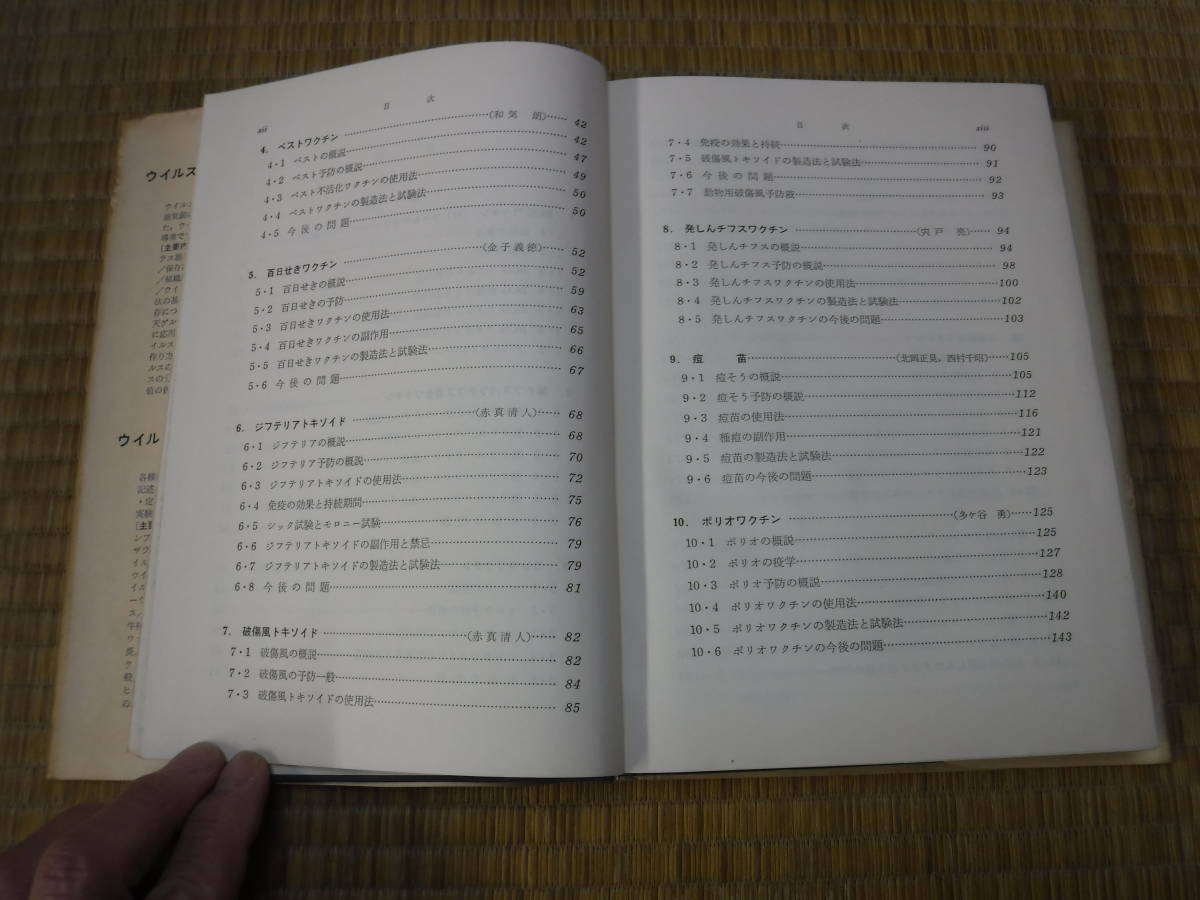 ウイルス
ウイル
[主要内
目　次
xii
4. ペストワクチン……(和気　朗)……42
4・1 ペストの概説……42
4・2 ペスト予防の概説……47
4・3 ペスト不活化ワクチンの使用法……49
4・4 ペストワクチンの製造法と試験法……50
4・5 今後の問題……50
5. 百日せきワクチン……(金子義徳)……52
5・1 百日せきの概説……52
5・2 百日せきの予防……59
5・3 百日せきワクチンの使用法……63
5・4 百日せきワクチンの副作用……65
5・5 百日せきワクチンの製造法と試験法……66
5・6 今後の問題……67
6. ジフテリアトキソイド……(赤真清人)……68
6・1 ジフテリアの概説……68
6・2 ジフテリア予防の概説……70
6・3 ジフテリアトキソイドの使用法……72
6・4 免疫の効果と持続期間……75
6・5 シック試験とモロニー試験……76
6・6 ジフテリアトキソイドの副作用と禁忌……79
6・7 ジフテリアトキソイドの製造法と試験法……79
6・8 今後の問題……81
7. 破傷風トキソイド……(赤真清人)……82
7・1 破傷風の概説……82
7・2 破傷風の予防一般……84
7・3 破傷風トキソイドの使用法……85
目　次
xiii
7・4 免疫の効果と持続……90
7・5 破傷風トキソイドの製造法と試験法……91
7・6 今後の問題……92
7・7 動物用破傷風予防液……93
8. 発しんチフスワクチン……(宍戸　亮)……94
8・1 発しんチフスの概説……94
8・2 発しんチフス予防の概説……98
8・3 発しんチフスワクチンの使用法……100
8・4 発しんチフスワクチンの製造法と試験法……102
8・5 発しんチフスワクチンの今後の問題……103
9. 痘　苗……(北岡正見，西村千昭)……105
9・1 痘そうの概説……105
9・2 痘そう予防の概説……112
9・3 痘苗の使用法……116
9・4 種痘の副作用……121
9・5 痘苗の製造法と試験法……122
9・6 痘苗の今後の問題……123
10. ポリオワクチン……(多ヶ谷　勇)……125
10・1 ポリオの概説……125
10・2 ポリオの疫学……127
10・3 ポリオ予防の概説……128
10・4 ポリオワクチンの使用法……140
10・5 ポリオワクチンの製造法と試験法……142
10・6 ポリオワクチンの今後の問題……143